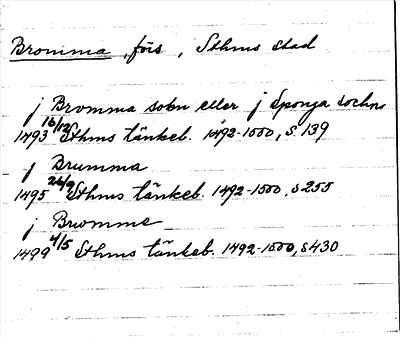 Bromma, förs, Sthms stad
j Bromma sokn eller j Sponga sochn
1493 16/12 Sthms tänkeb. 1492-1500, s. 139
j Brumma
1495 26/9 Sthms tänkeb. 1492-1500, s 255
j Bromme
1499 4/5 Sthms tänkeb. 1492-1500, s 430